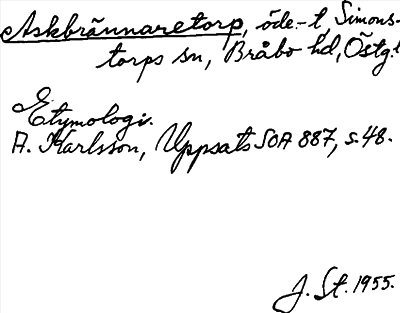 Askbrännaretorp, öde.-t, Simons-
torps sn, Bråbo hd, Östg.
Etymologi.
A. Karlsson, Uppsats SOA 887, s. 48.
J. St. 1955.